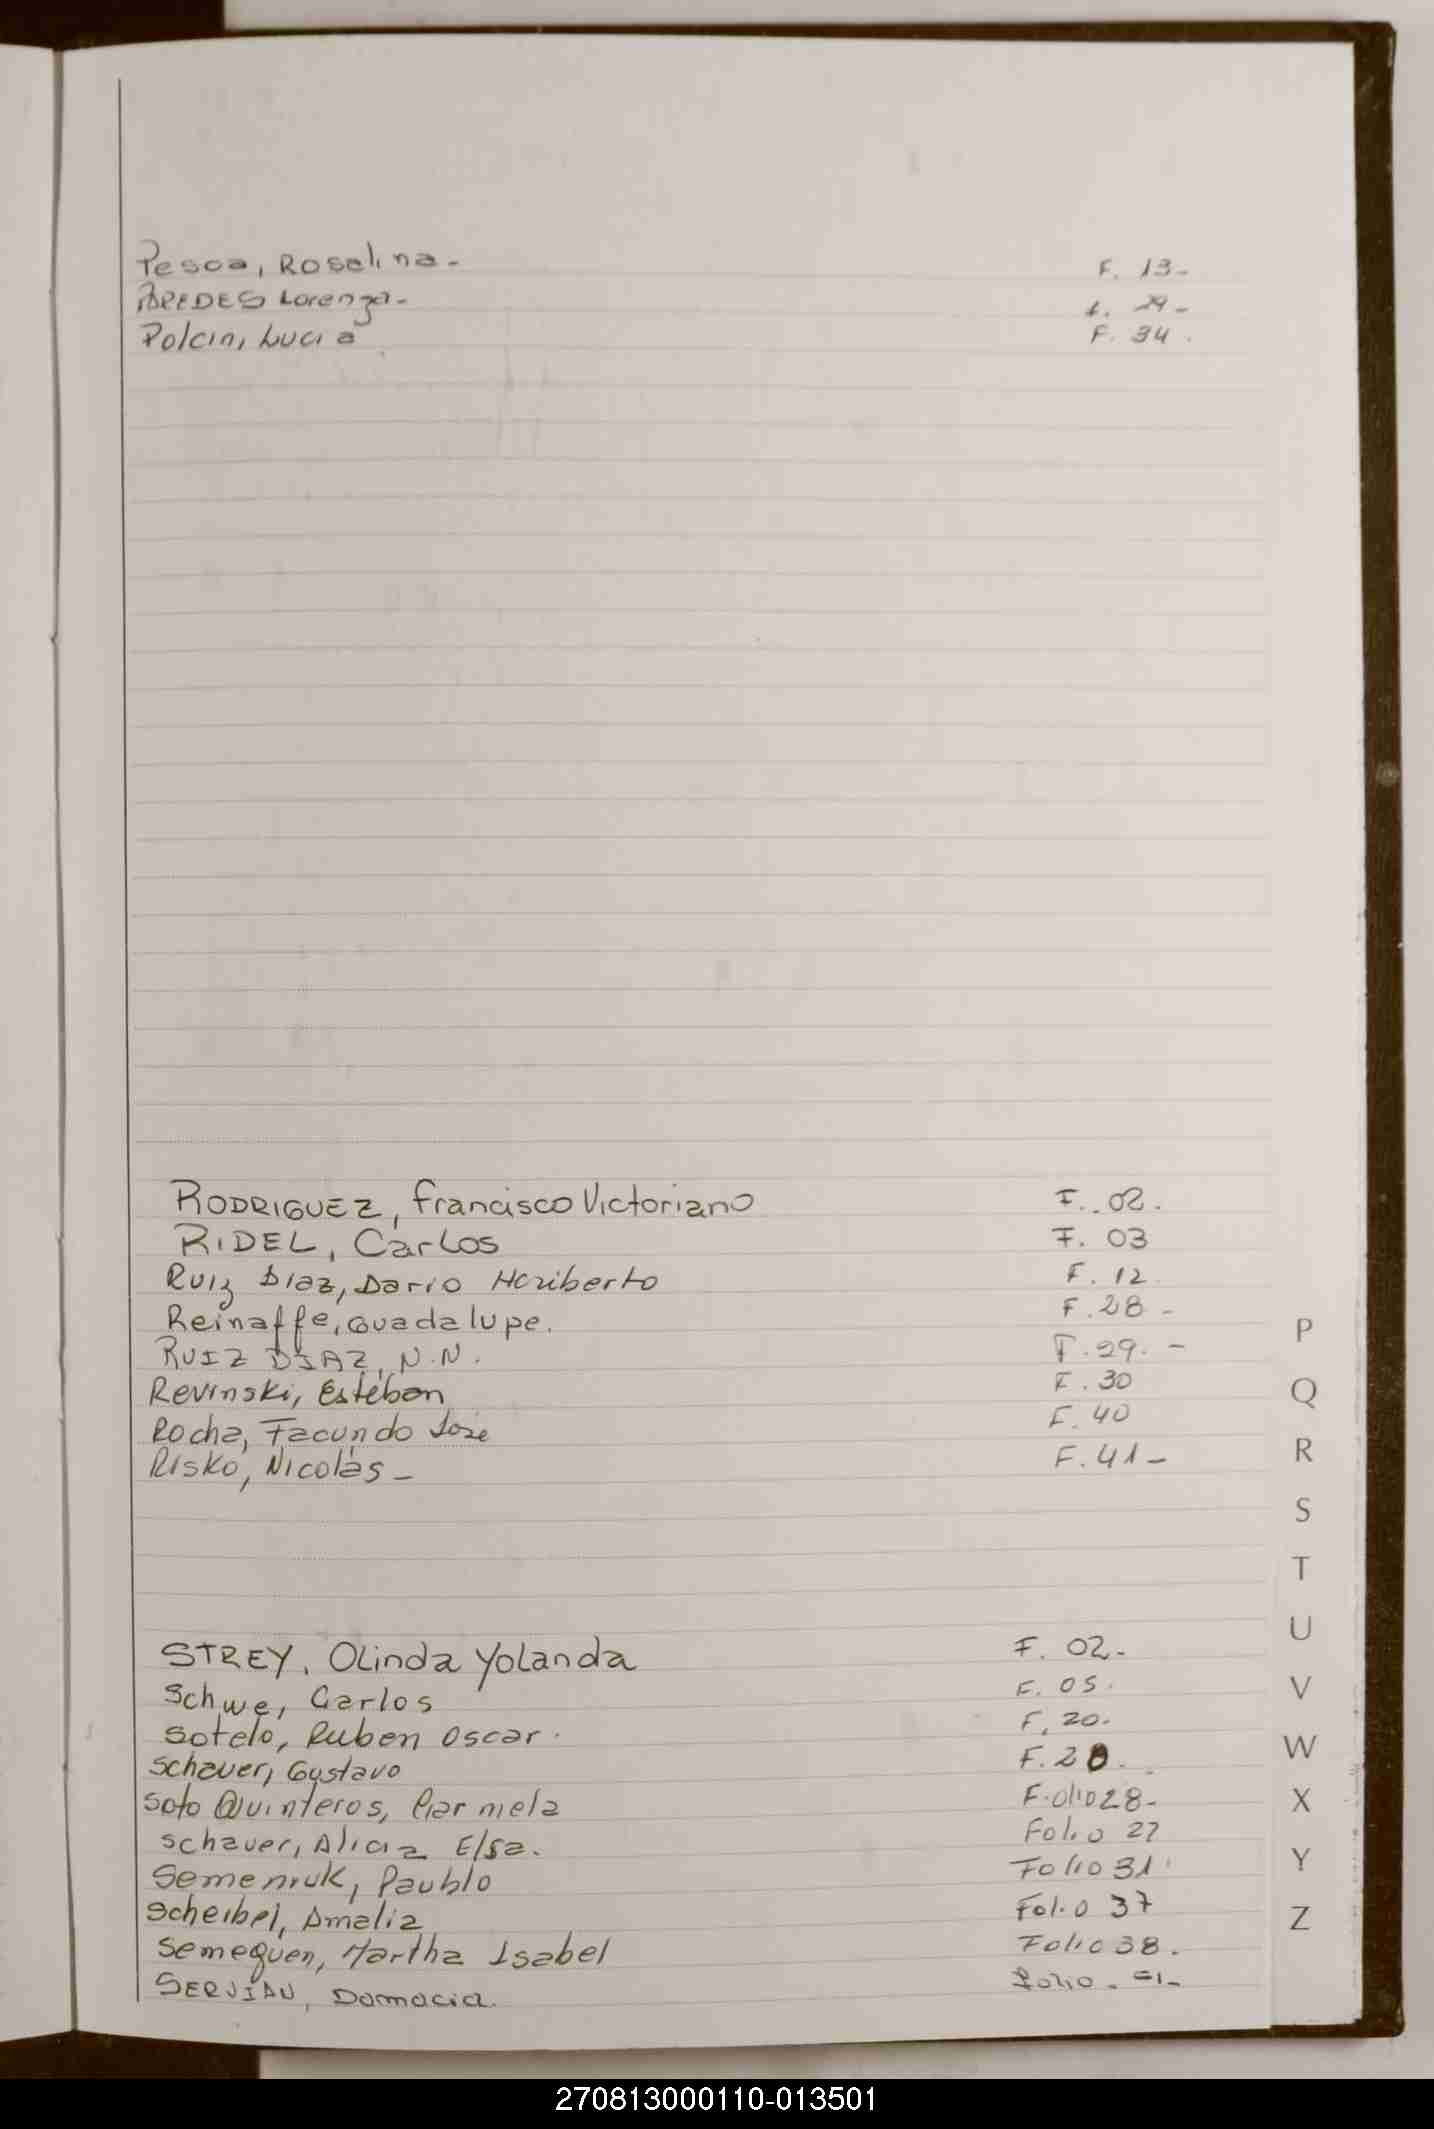 Pesoa, Roselina- F. 13-
PAREDES Lorenza- f. 29-
Polcin, Lucia F. 34.
RODRIGUEZ, Francisco Victoriano F. 02.
RIDEL, Carlos F. 03
Ruiz Diaz, Dario Heriberto F. 12
Reinaffe, Guadalupe. F. 28-
RUIZ DIAZ, N.N. F. 29. -
Revinski, Esteban F. 30
Rocha, Facundo José F. 40
Risko, Nicolás- F. 41-
STREY, Olinda Yolanda F. 02-
Schwe, Carlos F. 05.
Sotelo, Ruben Oscar. F. 20.
Schauer, Gustavo F. 20.
Soto Quinteros, Carmela Folio 28-
Schauer, Alicia Elsa. Folio 27
Semeniuk, Paublo Folio 31
Scheibel, Amelia Folio 37
Semeguen, Martha Isabel Folio 38.
SERVIAN, Damacia. Folio-
P
Q
R
S
T
U
V
W
X
Y
Z
270813000110-013501